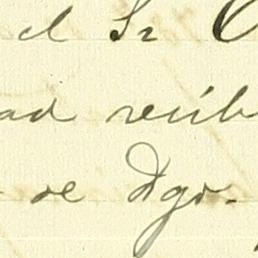 el Sr
ad recib
se Dgo.